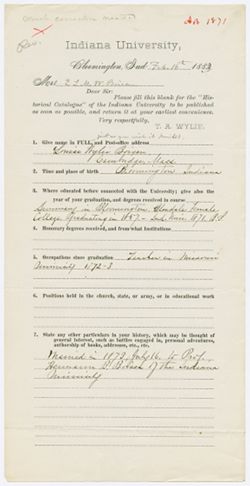 AB 1871
Indiana University,
Bloomington, Ind. Feb. 16th 1883
Dear Sir:
Please fill this blank for the "Historical Catalogue" of the Indiana University to be published
as soon as possible, and return it at your earliest convenience.
Very respectfully,
T. A. WYLIE.
1. Give name in FULL, and Post-office address
Louisa Wylie Boisen
Cambridge, Mass
2. Time and place of birth
Bloomington Indiana
3. Where educated before connected with the University; give also the
year of your graduation, and degrees received in course
Seminary in Bloomington, Glendale Female
College, graduating in 1857 - Ind. Univ. 1871
4. Honorary degrees received, and from what Institutions
5. Occupations since graduation
Teacher in Missouri
University 1872-3
6. Positions held in the church, state, army, or in educational work
7. State any other particulars in your history, which may be thought of
general interest, such as battles engaged in, personal adventures,
authorship of books, addresses, etc., etc.
Married in 1873, July 16 to Prof.
Hermann B. Boisen of the Indiana
University